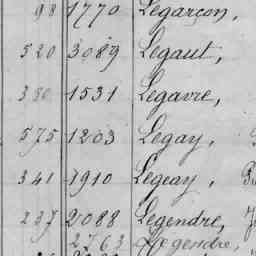 98 1770 Legarçon,
520 3089 Legaut,
380 1531 Legavre,
575 1203 Legay,
341 1910 Legeay,
237 2088 Legendre,
2763 Legendre,